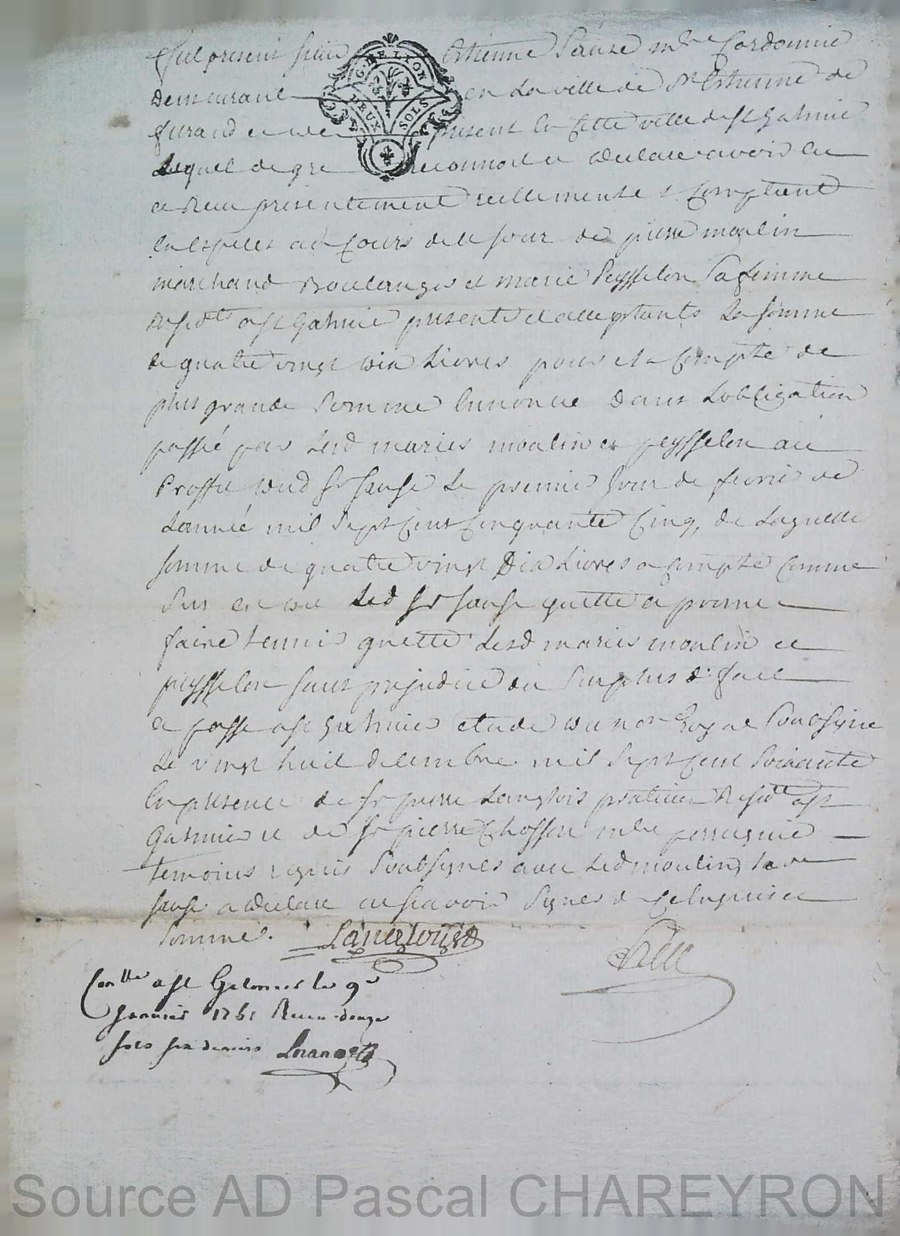 G. DE LYON
DEUX SOLS
Etienne Sauze me Cordonnie
Demeurant en La ville de St Etienne de
furand present En Cette ville de St Galmie
Lequel de gre reconnoit et declare avoir eu
et Receu presentement reellement et Comptant
En Especes au Cours de ce Jour de pierre moulin
marchand Boulanger et marie Peysselon Sa femme
a St Galmie presents et acceptants La Somme
de quatre vingt dix Livres pour et a Compte de
plus grande Somme Enoncée Dans Lobligation
passée par Lesd maries moulin et peysselon au
Proffit dud Sr Sauze Le premier Jour de fevrie de
Lannée mil Sept Cent Cinquante Cinq, de Laquelle
Somme de quatre vingt Dix Livres a Compte Comme
Led Sr Sauze quitte et promet
faire tenir quitte Lesd maries moulin et
peysselon sans prejudice du Surplus fait
et passe a St Galmie etude du nore Royal Soubsigne
Le vingt huit decembre mil Sept Cent Soixante
En presence de Sr pierre Langlois praticien Residt a St
Galmie et de Sr pierre Chosson me perruquie
temoins requis Soubsignes avec Led moulin,
Sauze a declare ne scavoir Signer de ce Enquis et
Somme.
Langlois
Conlle a St Galmier le 9e
Janvier 1761 Receu douze
sols six deniers
Source AD Pascal CHAREYRON